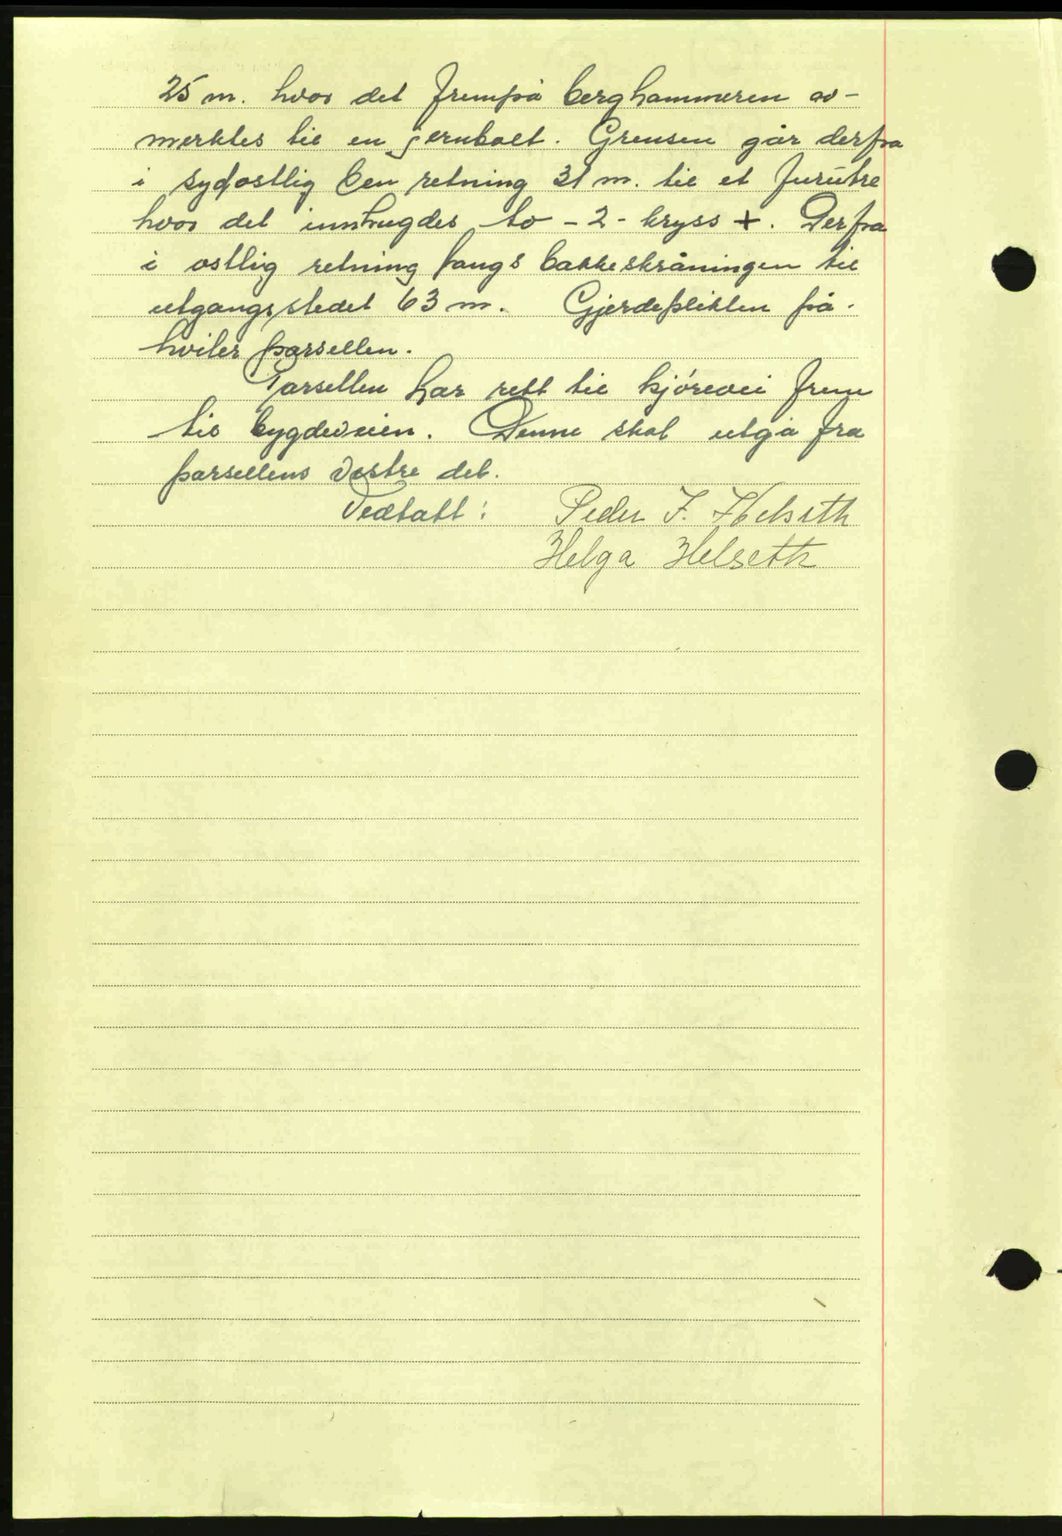 25 m. hvor det frempå berghammeren av-
merktes til en jernbolt. Grensen går derfra
i sydostlig ben retning 31 m. til et furutre
hvor det innhugdes to - 2 - kryss +. Derfra
i ostlig retning langs bakkeskråningen til
utgangsstedet 63 m. Gjerdeplikten på-
hviler parsellen.
Parsellen har rett til kjörevei frem
til bygdeveien. Denne skal utgå fra
parsellens vestre del.
Vedtatt: Peder J. Helseth
Helga Helseth